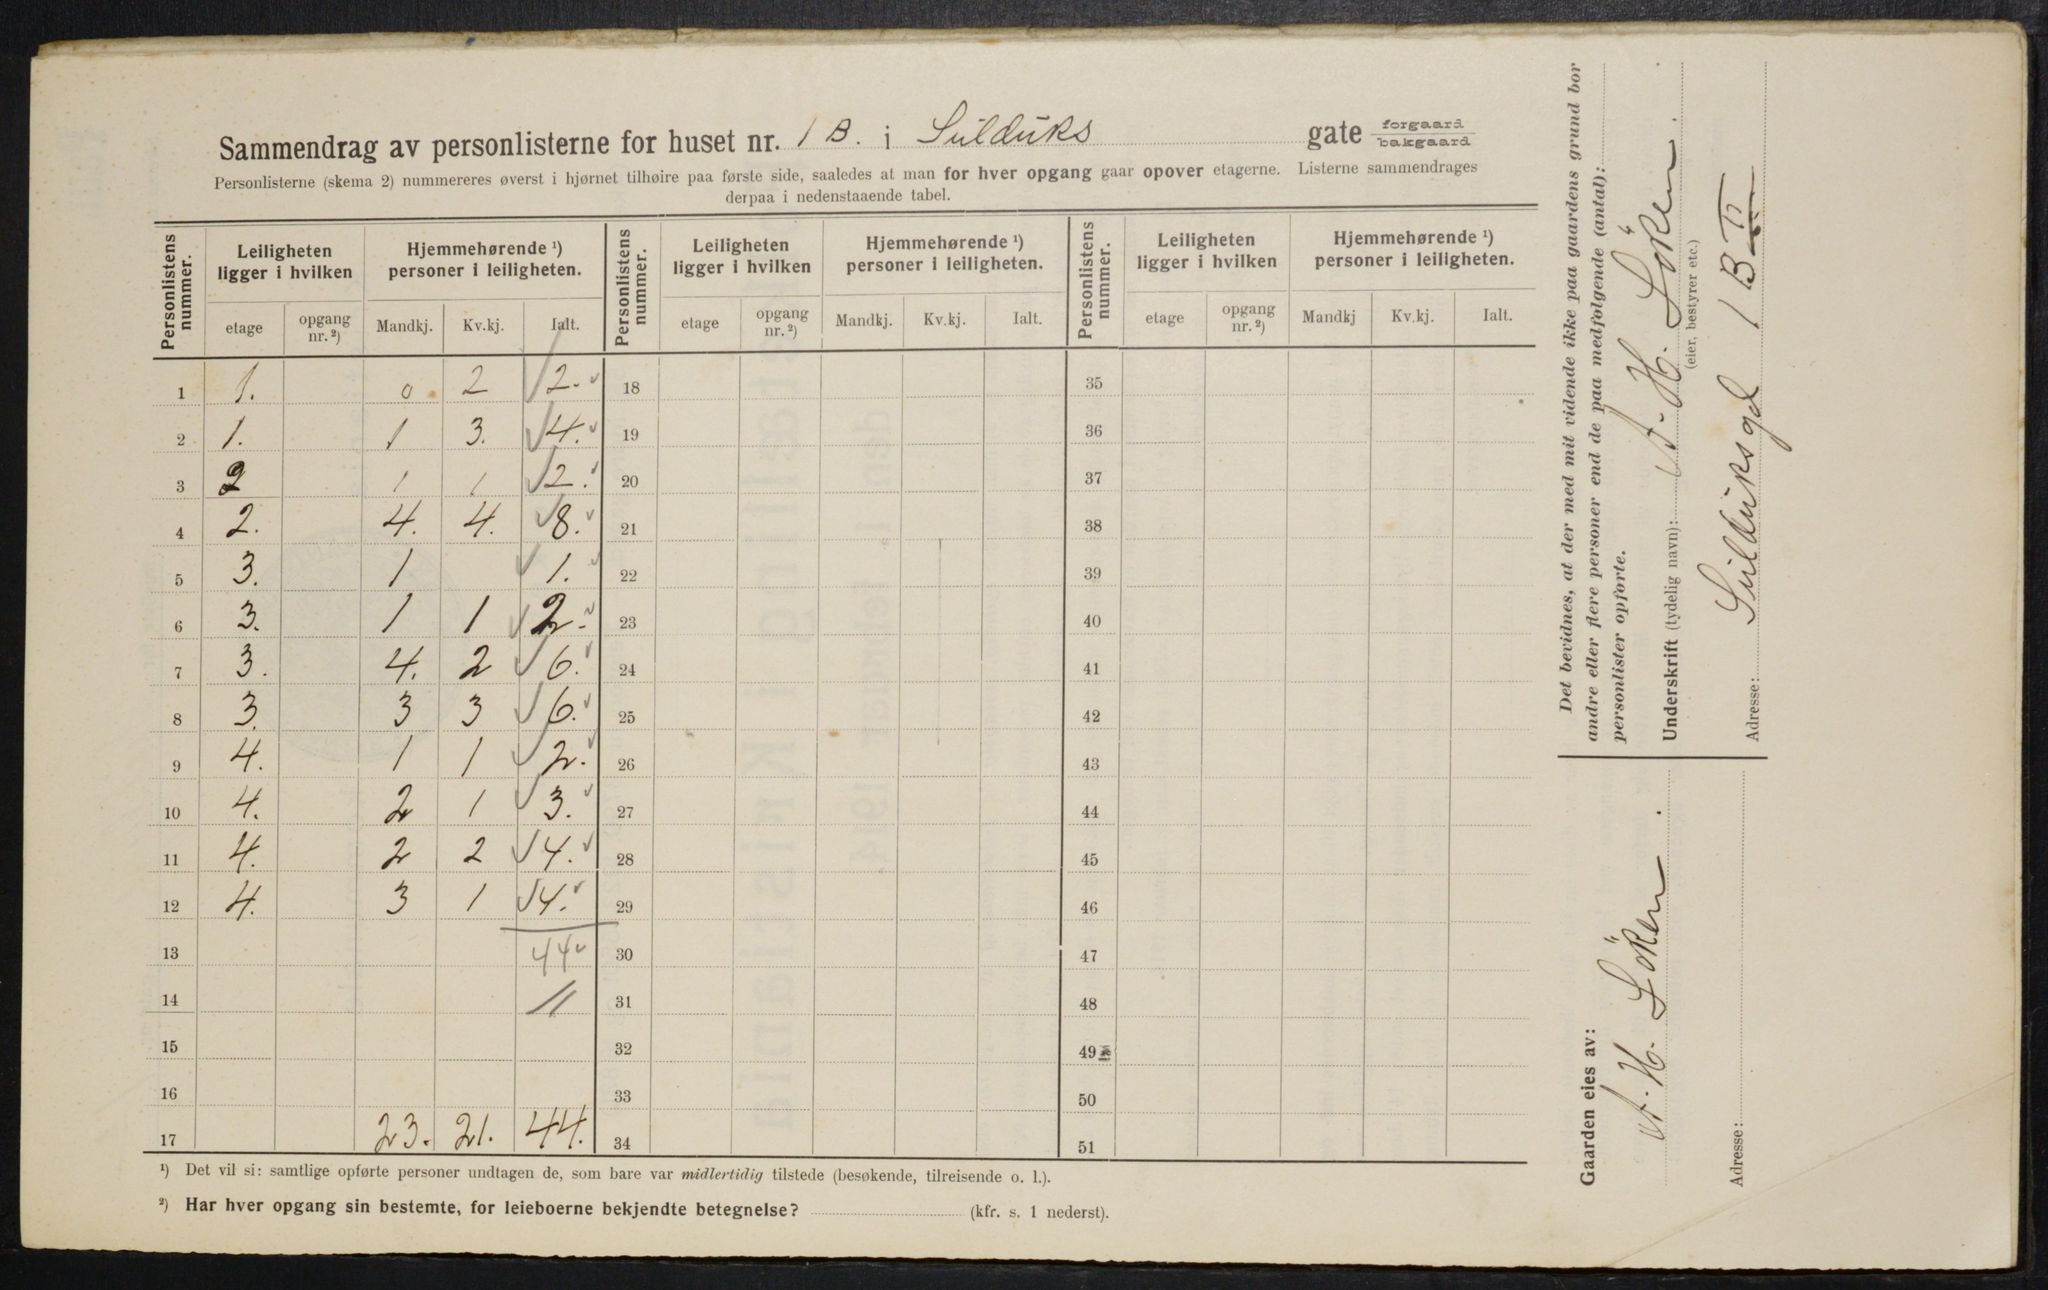 Sammendrag av personlisterne for huset nr. 1 B. i Sulduks gate forgaard bakgaard
Personlisterne (skema 2) nummereres øverst i hjørnet tilhøire paa første side, saaledes at man for hver opgang gaar opover etagerne. Listerne sammendrages
derpaa i nedenstaaende tabel.
Personlistens nummer. Leiligheten ligger i hvilken Hjemmehørende ¹) personer i leiligheten. Personlistens nummer. Leiligheten ligger i hvilken Hjemmehørende ¹) personer i leiligheten. Personlistens nummer. Leiligheten ligger i hvilken Hjemmehørende ¹) personer i leiligheten.
etage opgang nr. ²) Mandkj. Kv.kj. Ialt. etage opgang nr. ²) Mandkj. Kv.kj. Ialt. etage opgang nr. ²) Mandkj Kv.kj. Ialt.
1 1. 0 2 2. 18 35
2 1. 1 3. 4. 19 36
3 2 1 1 2. 20 37
4 2. 4. 4. 8. 21 38
5 3. 1 1. 22 39
6 3. 1 1 2. 23 40
7 3. 4. 2 6. 24 41
8 3. 3 3 6. 25 42
9 4. 1 1 2. 26 43
10 4. 2 1 3. 27 44
11 4. 2 2 4. 28 45
12 4. 3 1 4. 29 46
13 44 30 47
14 31 48
15 32 49
16 33 50
17 23. 21. 44. 34 51
¹) Det vil si: samtlige opførte personer undtagen de, som bare var midlertidig tilstede (besøkende, tilreisende o. l.).
²) Har hver opgang sin bestemte, for leieboerne bekjendte betegnelse? (kfr. s. 1 nederst).
Det bevidnes, at der med mit vidende ikke paa gaardens grund bor
andre eller flere personer end de paa medfølgende (antal):
personlister opførte.
Underskrift (tydelig navn): A. H. Löken.
(eier, bestyrer etc.)
Adresse: Sulduksgd 1 B II
Gaarden eies av:
A. H. Löken.
Adresse: